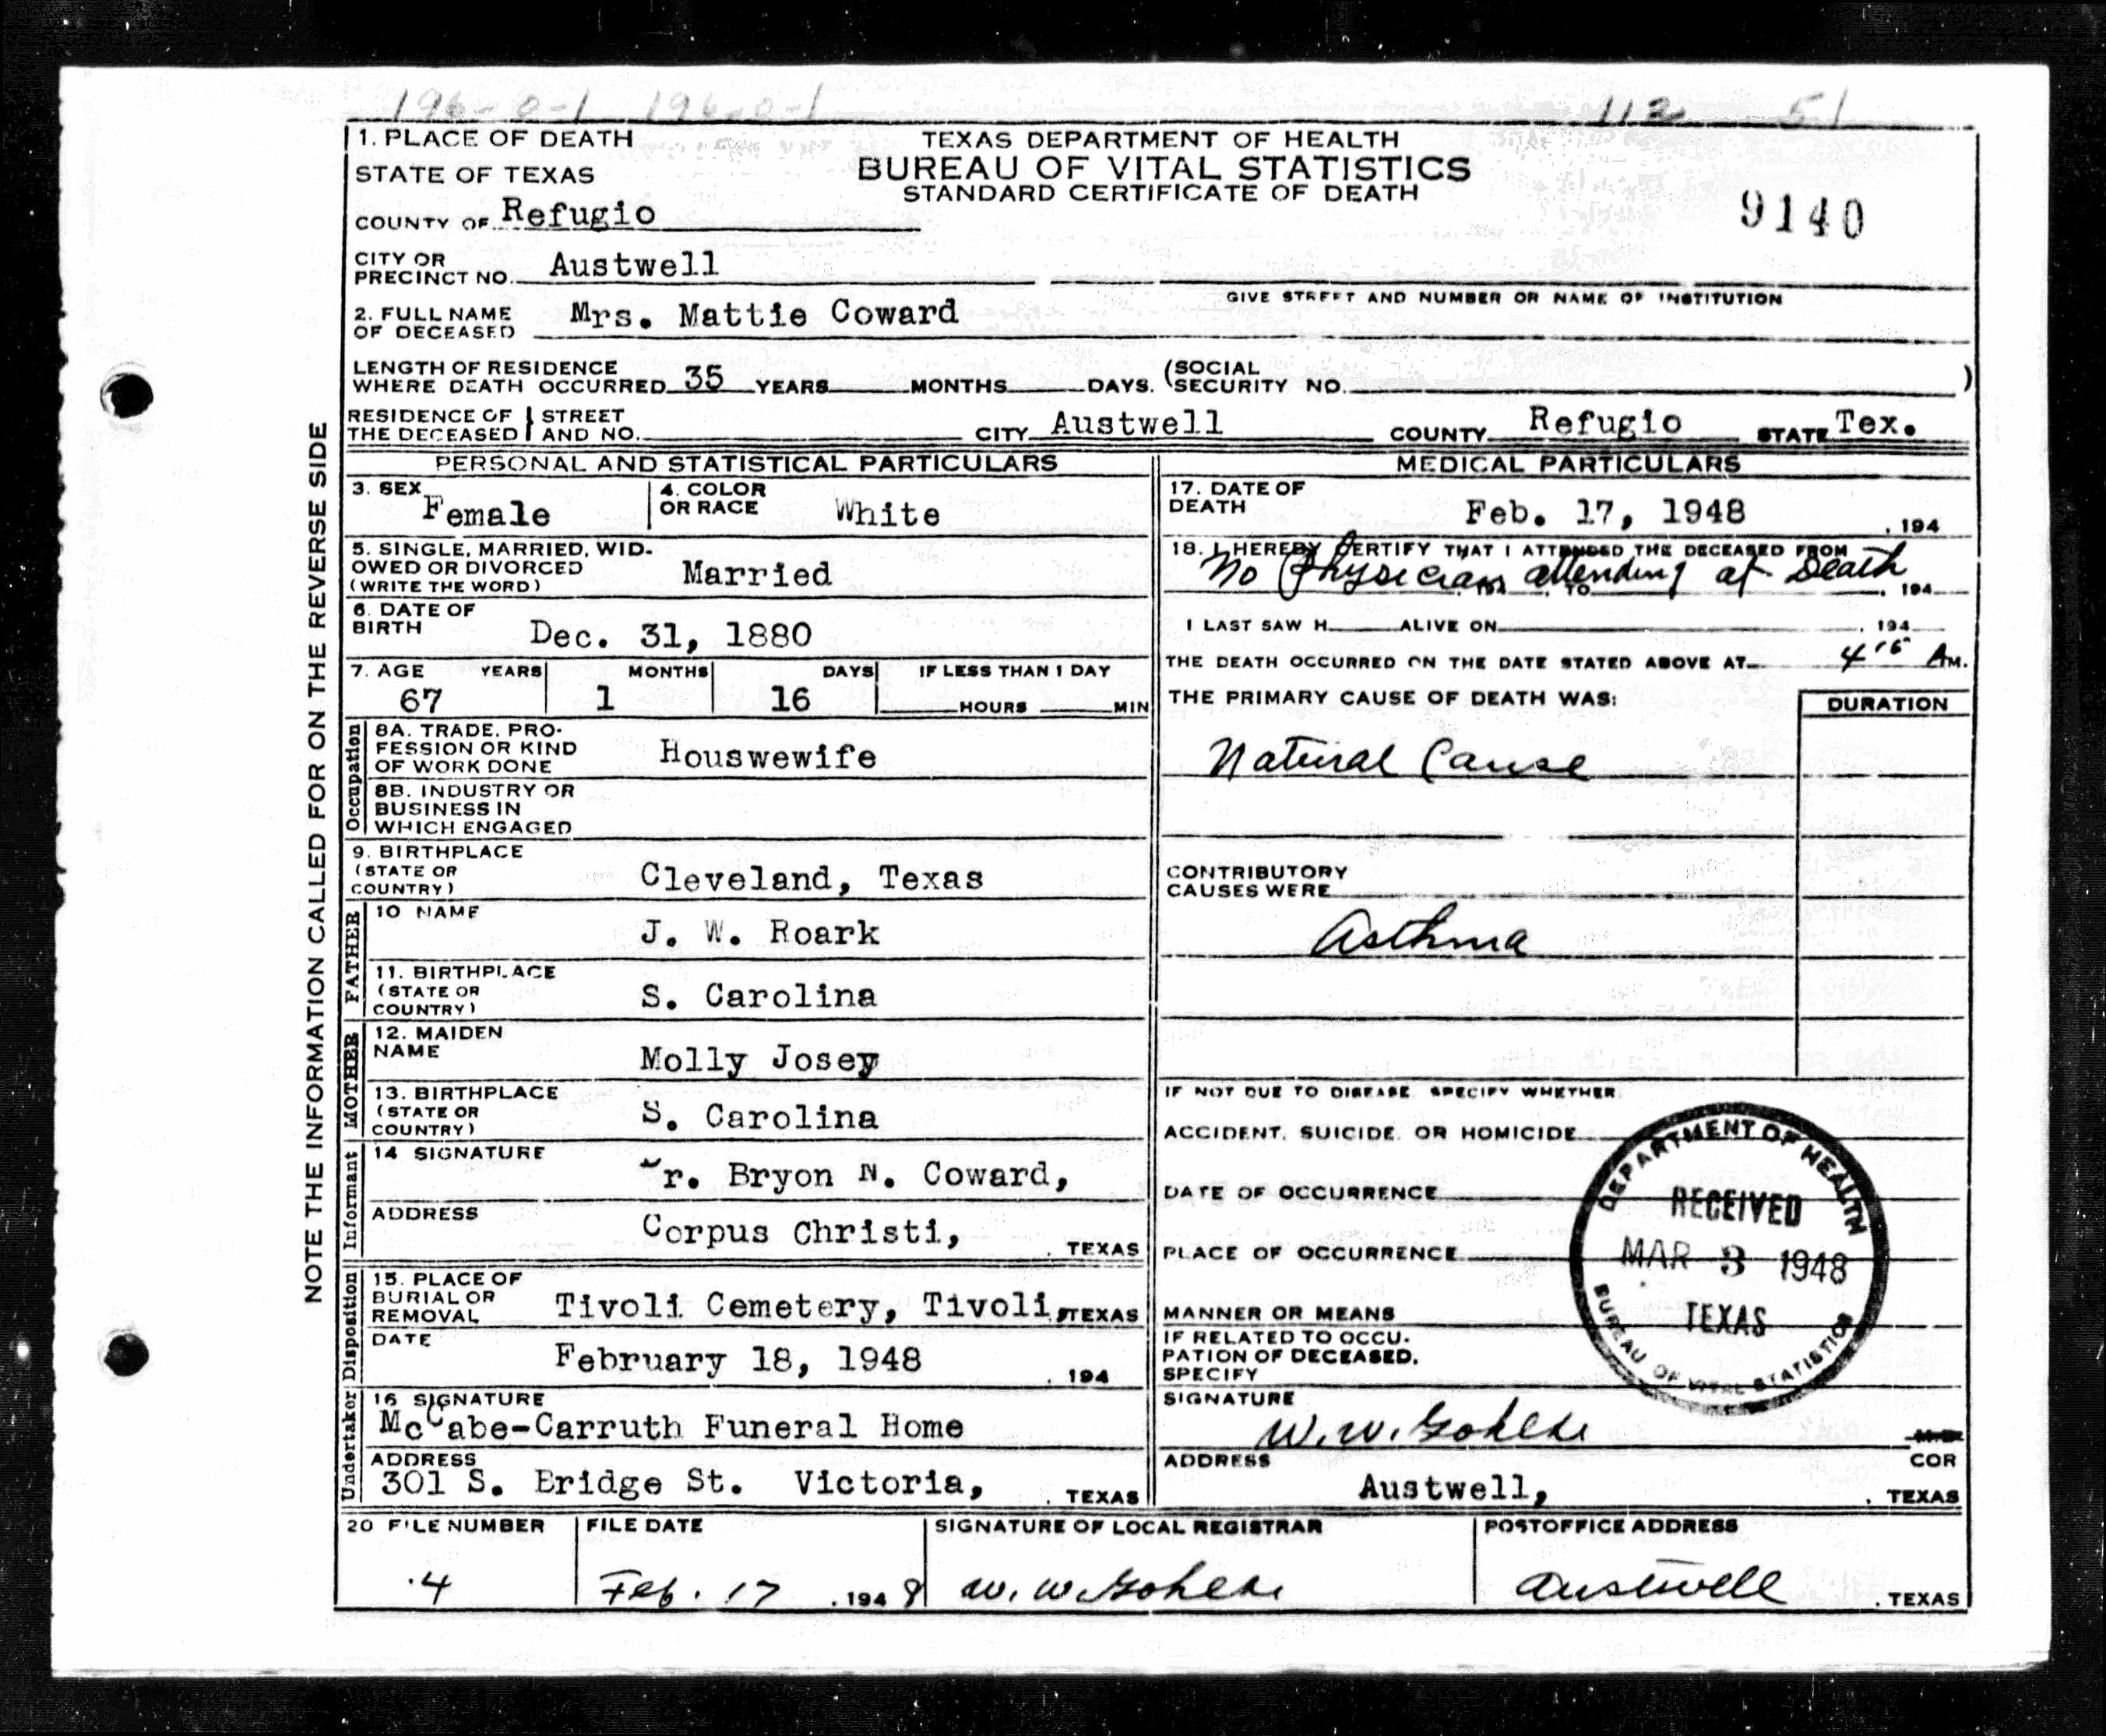 196-0-1 196-0-1
112 51
1. PLACE OF DEATH
STATE OF TEXAS
COUNTY OF Refugio
CITY OR
PRECINCT NO. Austwell
TEXAS DEPARTMENT OF HEALTH
BUREAU OF VITAL STATISTICS
STANDARD CERTIFICATE OF DEATH
9140
GIVE STREET AND NUMBER OR NAME OF INSTITUTION
2. FULL NAME
OF DECEASED Mrs. Mattie Coward
LENGTH OF RESIDENCE
WHERE DEATH OCCURRED 35 YEARS MONTHS DAYS.
(SOCIAL
SECURITY NO. )
RESIDENCE OF } STREET
THE DECEASED } AND NO. CITY Austwell COUNTY Refugio STATE Tex.
NOTE THE INFORMATION CALLED FOR ON THE REVERSE SIDE
PERSONAL AND STATISTICAL PARTICULARS
3. SEX
Female
4. COLOR
OR RACE White
5. SINGLE, MARRIED, WID-
OWED OR DIVORCED
(WRITE THE WORD) Married
6. DATE OF
BIRTH Dec. 31, 1880
7. AGE YEARS MONTHS DAYS IF LESS THAN 1 DAY
67 1 16 HOURS MIN
Occupation
8A. TRADE, PRO-
FESSION OR KIND
OF WORK DONE Houswewife
8B. INDUSTRY OR
BUSINESS IN
WHICH ENGAGED
9. BIRTHPLACE
(STATE OR
COUNTRY) Cleveland, Texas
FATHER
10 NAME
J. W. Roark
11. BIRTHPLACE
(STATE OR
COUNTRY) S. Carolina
MOTHER
12. MAIDEN
NAME Molly Josey
13. BIRTHPLACE
(STATE OR
COUNTRY) S. Carolina
Informant
14 SIGNATURE
r. Bryon N. Coward,
ADDRESS
Corpus Christi, . TEXAS
Disposition
15. PLACE OF
BURIAL OR
REMOVAL Tivoli Cemetery, Tivoli, TEXAS
DATE
February 18, 1948 , 194
Undertaker
16 SIGNATURE
McCabe-Carruth Funeral Home
ADDRESS
301 S. Bridge St. Victoria, . TEXAS
MEDICAL PARTICULARS
17. DATE OF
DEATH Feb. 17, 1948 , 194
18. I HEREBY CERTIFY THAT I ATTENDED THE DECEASED FROM
No Physician attending at Death
, 194 , TO , 194
I LAST SAW H ALIVE ON , 194
THE DEATH OCCURRED ON THE DATE STATED ABOVE AT 4 15 A M.
THE PRIMARY CAUSE OF DEATH WAS: DURATION
Natural Cause
CONTRIBUTORY
CAUSES WERE
Asthma
IF NOT DUE TO DISEASE, SPECIFY WHETHER:
ACCIDENT, SUICIDE, OR HOMICIDE
DATE OF OCCURRENCE
PLACE OF OCCURRENCE
MANNER OR MEANS
IF RELATED TO OCCU-
PATION OF DECEASED,
SPECIFY
DEPARTMENT OF HEALTH
RECEIVED
MAR 3 1948
TEXAS
BUREAU OF VITAL STATISTICS
SIGNATURE
W. W. Gohlke M.D.
ADDRESS COR
Austwell, . TEXAS
20 FILE NUMBER FILE DATE SIGNATURE OF LOCAL REGISTRAR POSTOFFICE ADDRESS
4 Feb. 17 , 1948 W. W. Gohlke Austwell . TEXAS